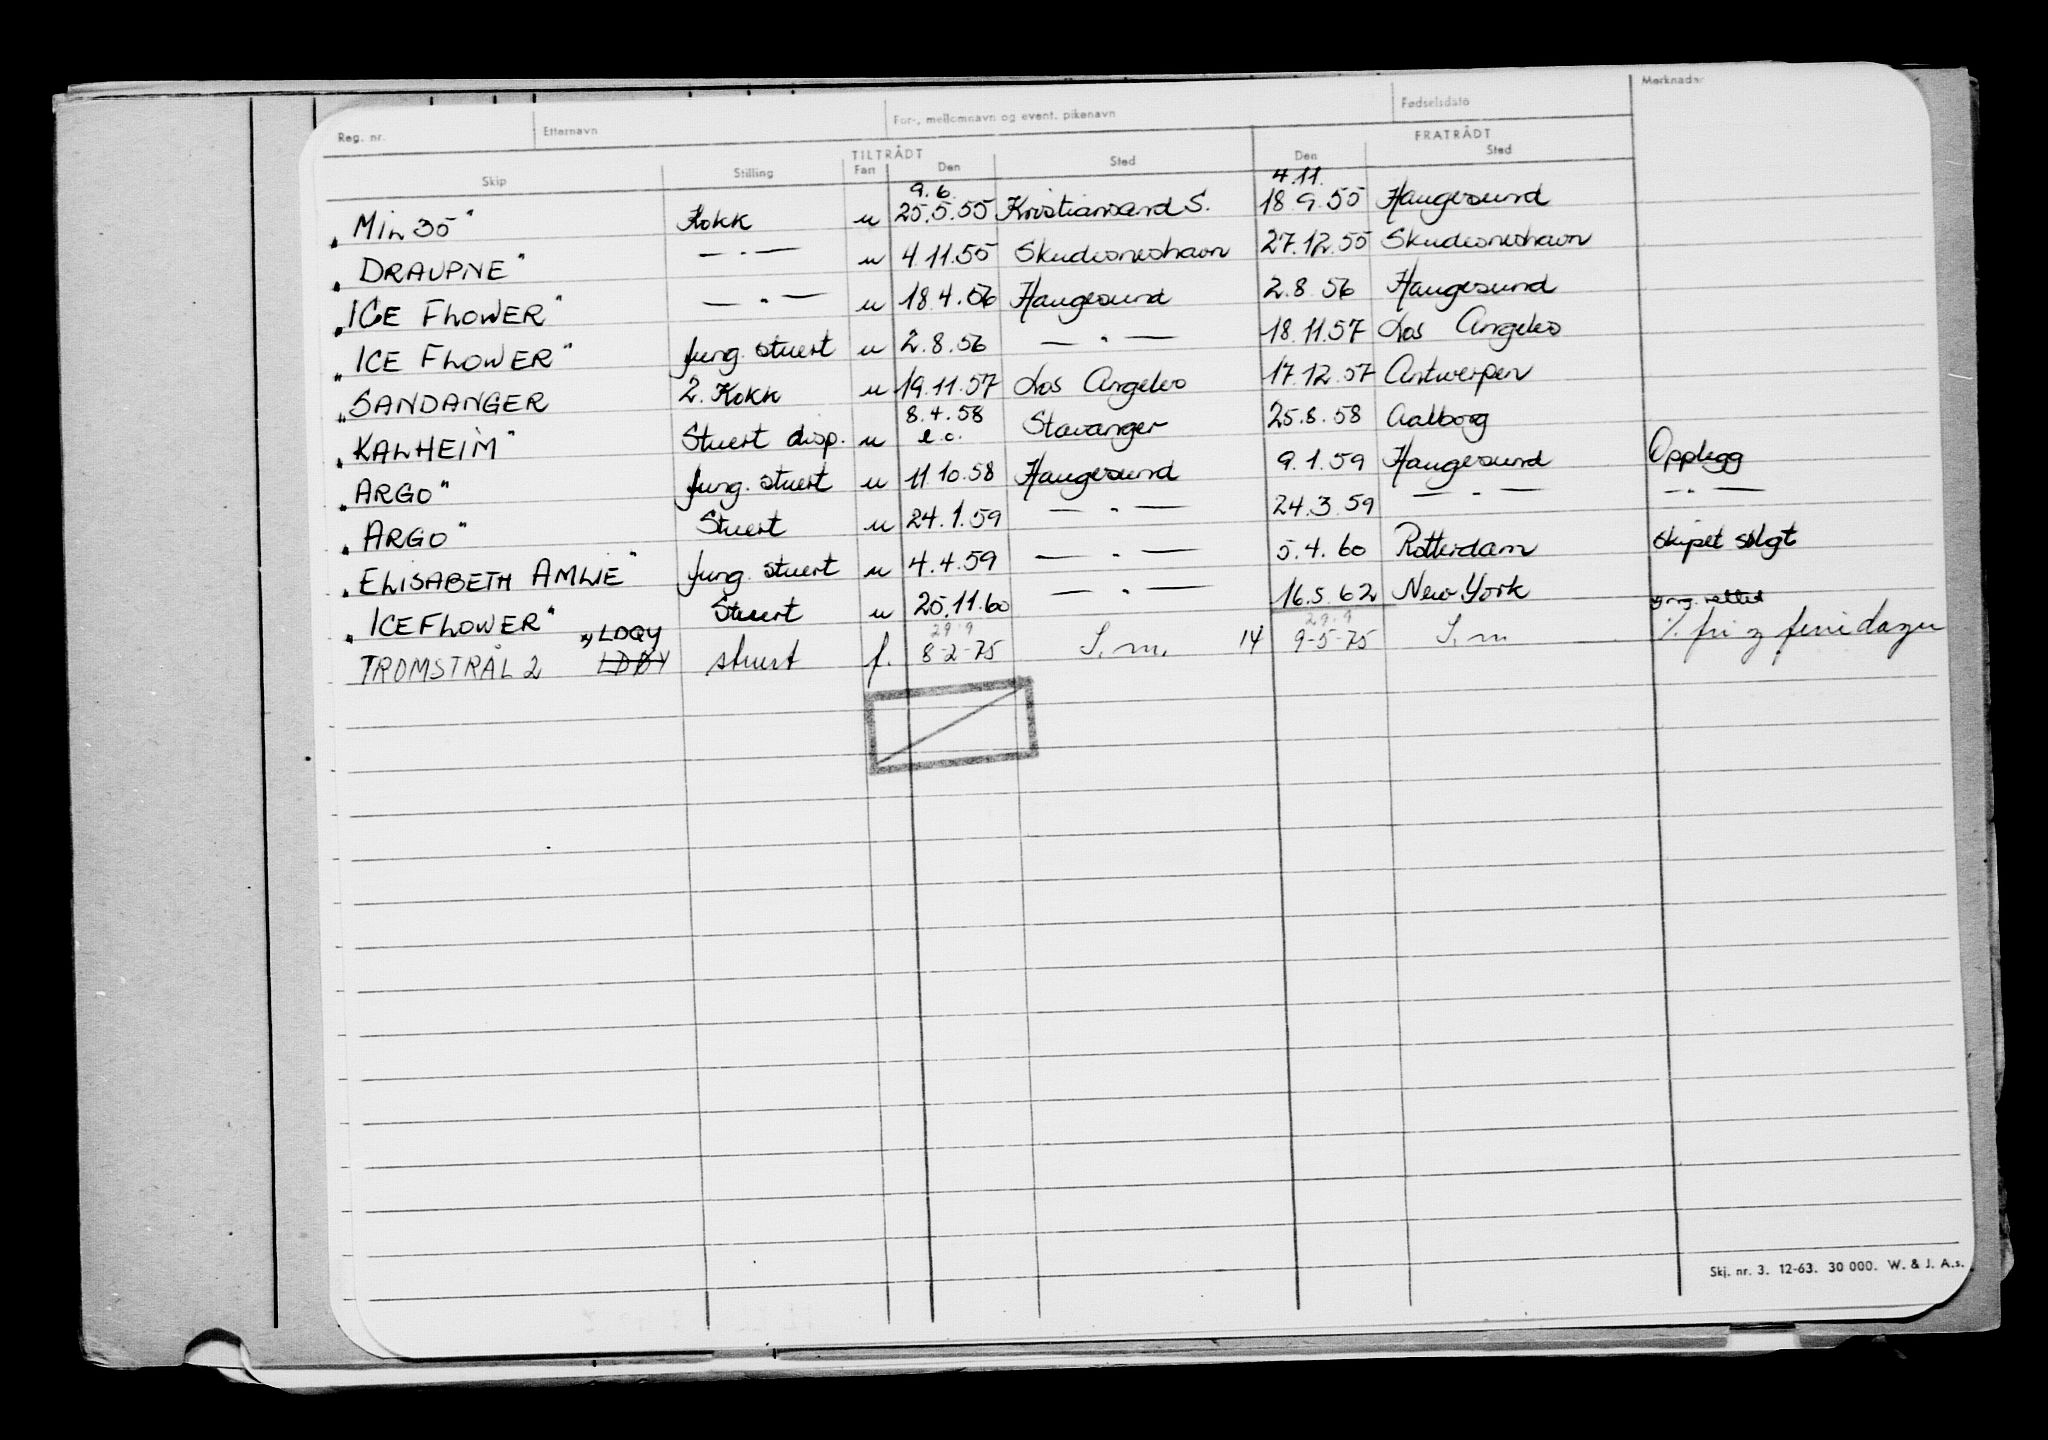 Reg. nr. Etternavn For-, mellomnavn og event. pikenavn Fødselsdato Merknader
TILTRÅDT FRATRÅDT
Skip Stilling Fart Den Sted Den Sted
9.6. 4.11.
"MIL 35" Kokk u 25.5.55 Kristiansand S. 18.9.55 Haugesund
"DRAUPNE" — " — u 4.11.55 Skudesneshavn 27.12.55 Skudesneshavn
"ICE FLOWER" — " — u 18.4.56 Haugesund 2.8.56 Haugesund
"ICE FLOWER" fung. stuert u 2.8.56 — " — 18.11.57 Los Angeles
"SANDANGER 2. Kokk u 19.11.57 Los Angeles 17.12.57 Antwerpen
"KALHEIM" Stuert disp. u 8.4.58 e.c. Stavanger 25.8.58 Aalborg
"ARGO" fung. stuert u 11.10.58 Haugesund 9.1.59 Haugesund Opplegg
"ARGO" Stuert u 24.1.59 — " — 24.3.59 — " — — " —
"ELISABETH AMLIE" fung. stuert u 4.4.59 — " — 5.4.60 Rotterdam skipet solgt
"ICEFLOWER" Stuert u 25.11.60 — " — 16.5.62 New York
"LDQY 29.9 29.9
TROMSTRÅL 2 LDBY stuert f. 8-2-75 S.m. 14 9-5-75 S.m ./. fri g feriedager
Skj. nr. 3. 12-63. 30 000. W. & J. A.s.